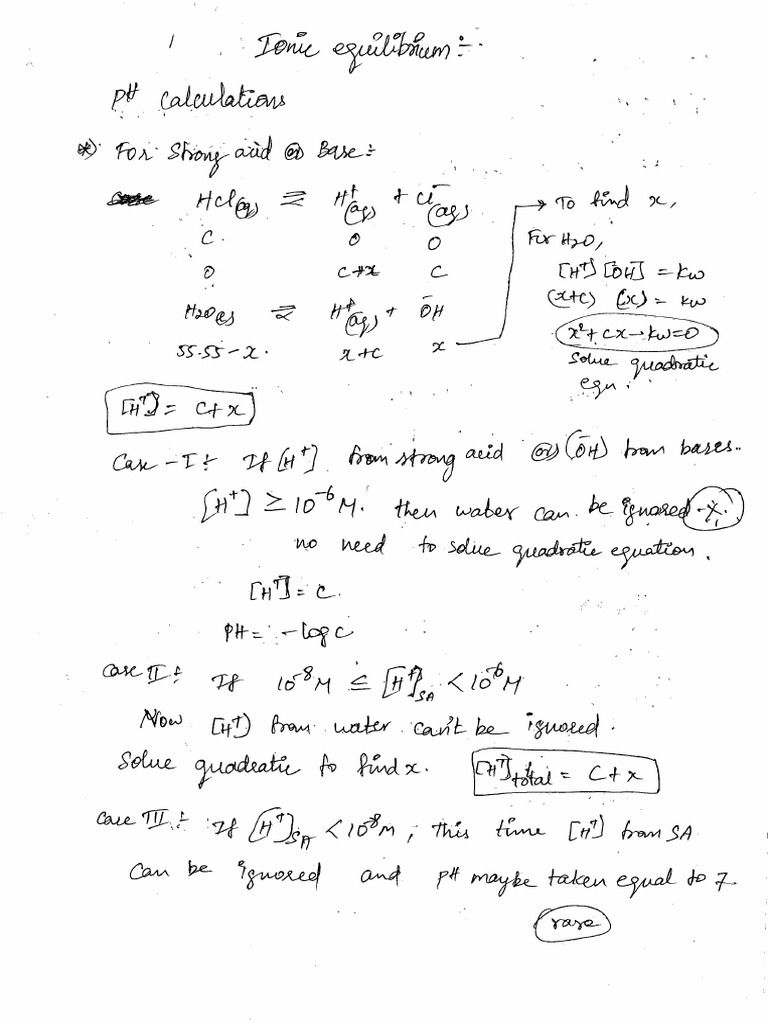 1
Ionic equilibrium :-
pH calculations
*) For Strong acid or Base :-
HCl(aq) ⇌ H⁺(aq) + Cl⁻(aq)
C 0 0
0 C+x C
H2O(l) ⇌ H⁺(aq) + ŌH
55.55-x. x+C x
→ To find x,
For H2O,
[H⁺] [ŌH] = kw
(x+C) (x) = kw
x²+ Cx-kw=0
Solve quadratic
eqn.
[H⁺] = C+x
Case-I :- If [H⁺] from strong acid or (ŌH) from bases..
[H⁺] ≥ 10⁻⁶ M. then water can be ignored -x.
no need to solve quadratic equation.
[H⁺] = C.
PH = -log C
Case II :- If 10⁻⁸ M ≤ [H⁺]SA < 10⁻⁶ M
Now [H⁺] from water can't be ignored.
Solve quadratic to find x. [H⁺]total = C+x
Case III :- If [H⁺]SA < 10⁻⁸ M, this time [H⁺] from SA
can be ignored and pH maybe taken equal to 7.
rare